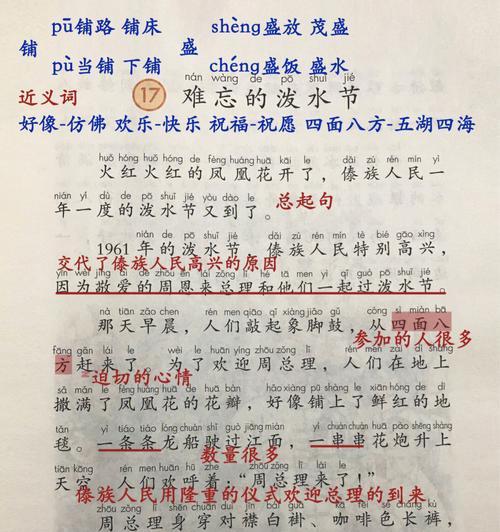 pū铺路 铺床 shèng盛放 茂盛
铺 盛
pù当铺 下铺 chéng盛饭 盛水
近义词
nán wàng de pō shuǐ jié
17 难忘的泼水节
好像-仿佛 欢乐-快乐 祝福-祝愿 四面八方-五湖四海
huǒ hóng huǒ hóng de fèng huáng huā kāi le dǎi zú rén mín yì
火红火红的凤凰花开了,傣族人民一
nián yí dù de pō shuǐ jié yòu dào le
年一度的泼水节又到了。 总起句
nián de pō shuǐ jié dǎi zú rén mín tè bié gāo xìng
1961年的泼水节,傣族人民特别高兴,
交代了傣族人民高兴的原因
因为敬爱的周恩来总理和他们一起过泼水节。
nà tiān zǎo chén rén men qiāo qǐ xiàng jiǎo gǔ cóng sì miàn bā
那天早晨,人们敲起象脚鼓,从四面八
参加的人很多
fāng gǎn lái le wèi le huān yíng zhōu zǒng lǐ rén men zài dì shàng
方赶来了。为了欢迎周总理,人们在地上
迫切的心情
sǎ mǎn le fèng huáng huā de huā bàn hǎo xiàng pū shàng le xiān hóng de dì
撒满了凤凰花的花瓣,好像铺上了鲜红的地
tǎn yì tiáo tiáo lóng chuán shǐ guò jiāng miàn yí chuàn chuàn huā pào shēng shàng
毯。一条条龙船驶过江面,一串串花炮升上
数量很多
tiān kōng rén men huān hū zhe zhōu zǒng lǐ lái le
天空。人们欢呼着:“周总理来了!”
傣族人民用隆重的仪式欢迎总理的到来
周总理身穿对襟白褂、咖啡色长裤,